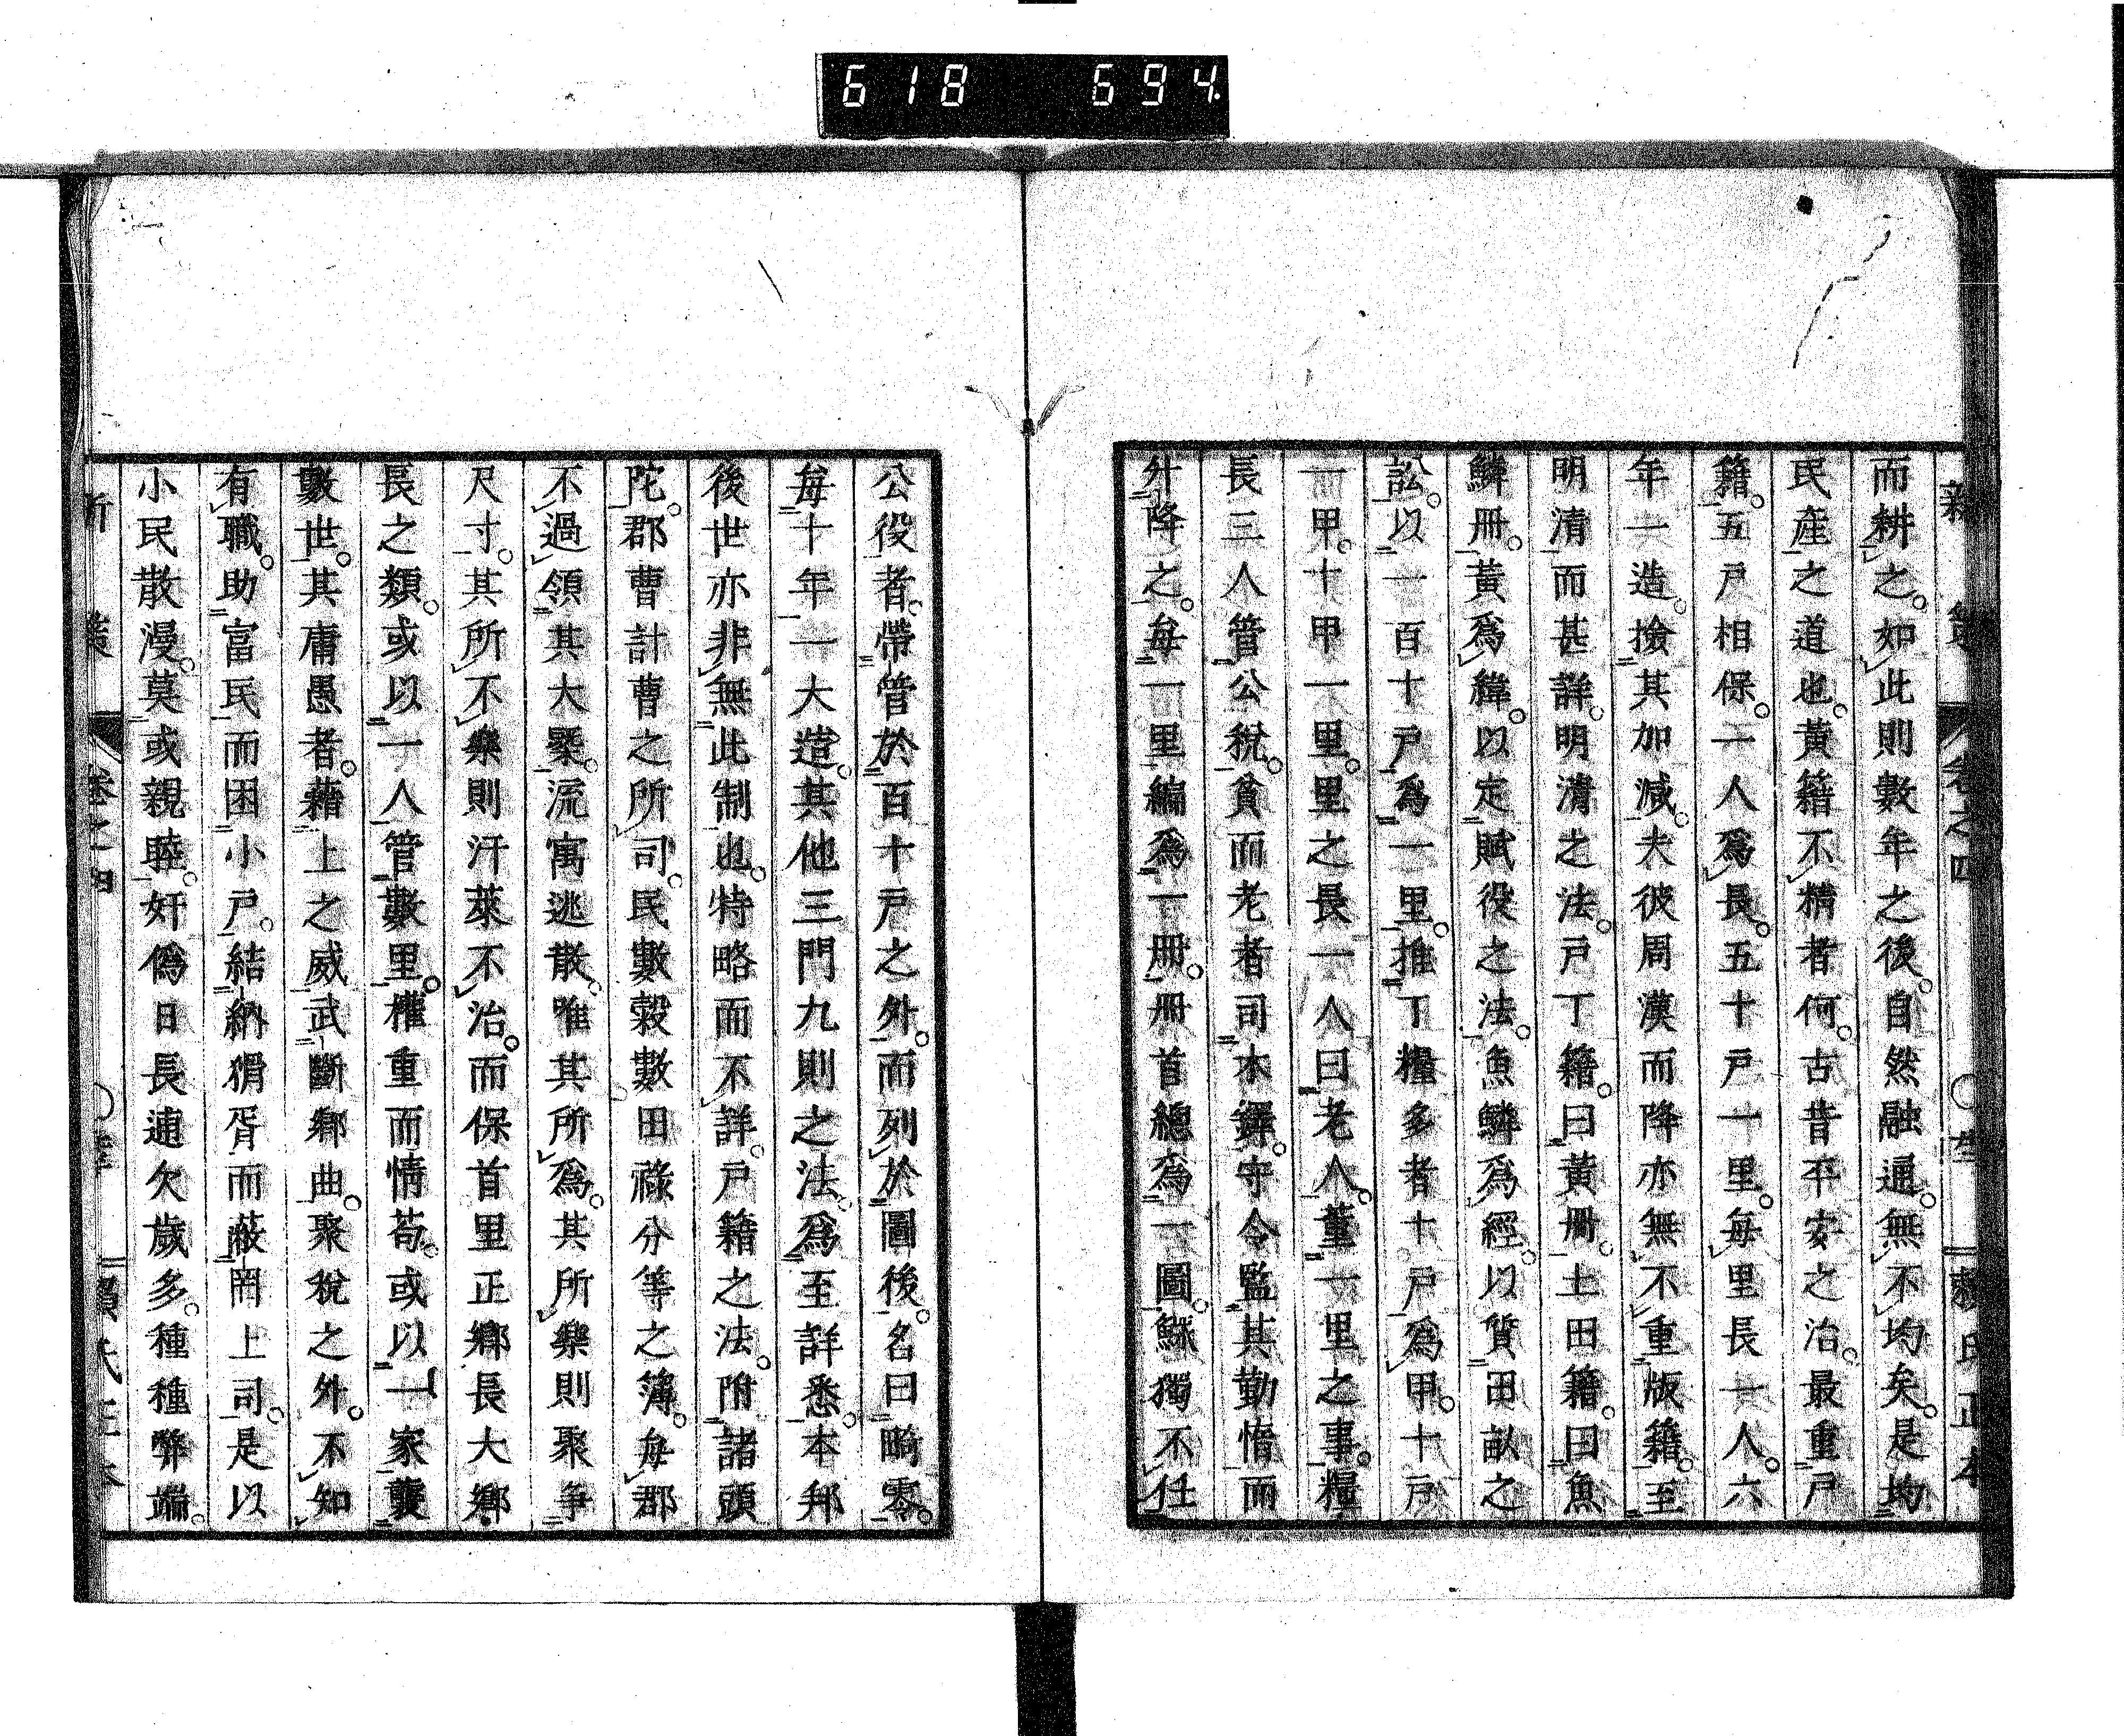 618 694
而耕之。如此則數年之後。自然融通。無不均矣。是均
民産之道也。黃籍不精者何。古昔平安之治。最重戸
籍。五戸相保。一人爲長。五十戸一里。毎里長一人。六
年一造。撿其加减。夫彼周漢而降亦無不重版籍。至
明清而甚詳。明清之法。戸丁籍。曰黃冊。土田籍。曰魚
鱗冊。黃爲緯。以定賦役之法。魚鱗爲經。以質田畝之
訟。以一百十戸爲一里。推丁糧多者十戸爲甲。十戸
一甲。十甲一里。里之長一人曰老人。董一里之事。糧
長三人管公稅。貧而老者司木鐸。守令監其勤惰而
升降之。毎一里編爲一冊。冊首總爲一圖。鰥獨不任
公役者。帶管於百十戸之外。而列於圖後。名曰畸零。
毎十年一大造。其他三門九則之法。爲至詳悉。本邦
後世亦非無此制也。特略而不詳。戸籍之法。附諸頭
陀。郡曹計曹之所司。民數穀數田祿分等之簿。毎郡
不過領其大槩。流寓逃散。唯其所爲。其所樂則聚爭
尺寸。其所不樂則汙萊不治。而保首里正鄉長大鄉
長之類。或以一人管數里。權重而情苟。或以一家襲
數世。其庸愚者。藉上之威。武斷鄉曲。聚稅之外。不知
有職。助富民而困小戸。結納猾胥而蔽罔上司。是以
小民散漫。莫或親睦。奸僞日長逋欠歲多。種種弊端。